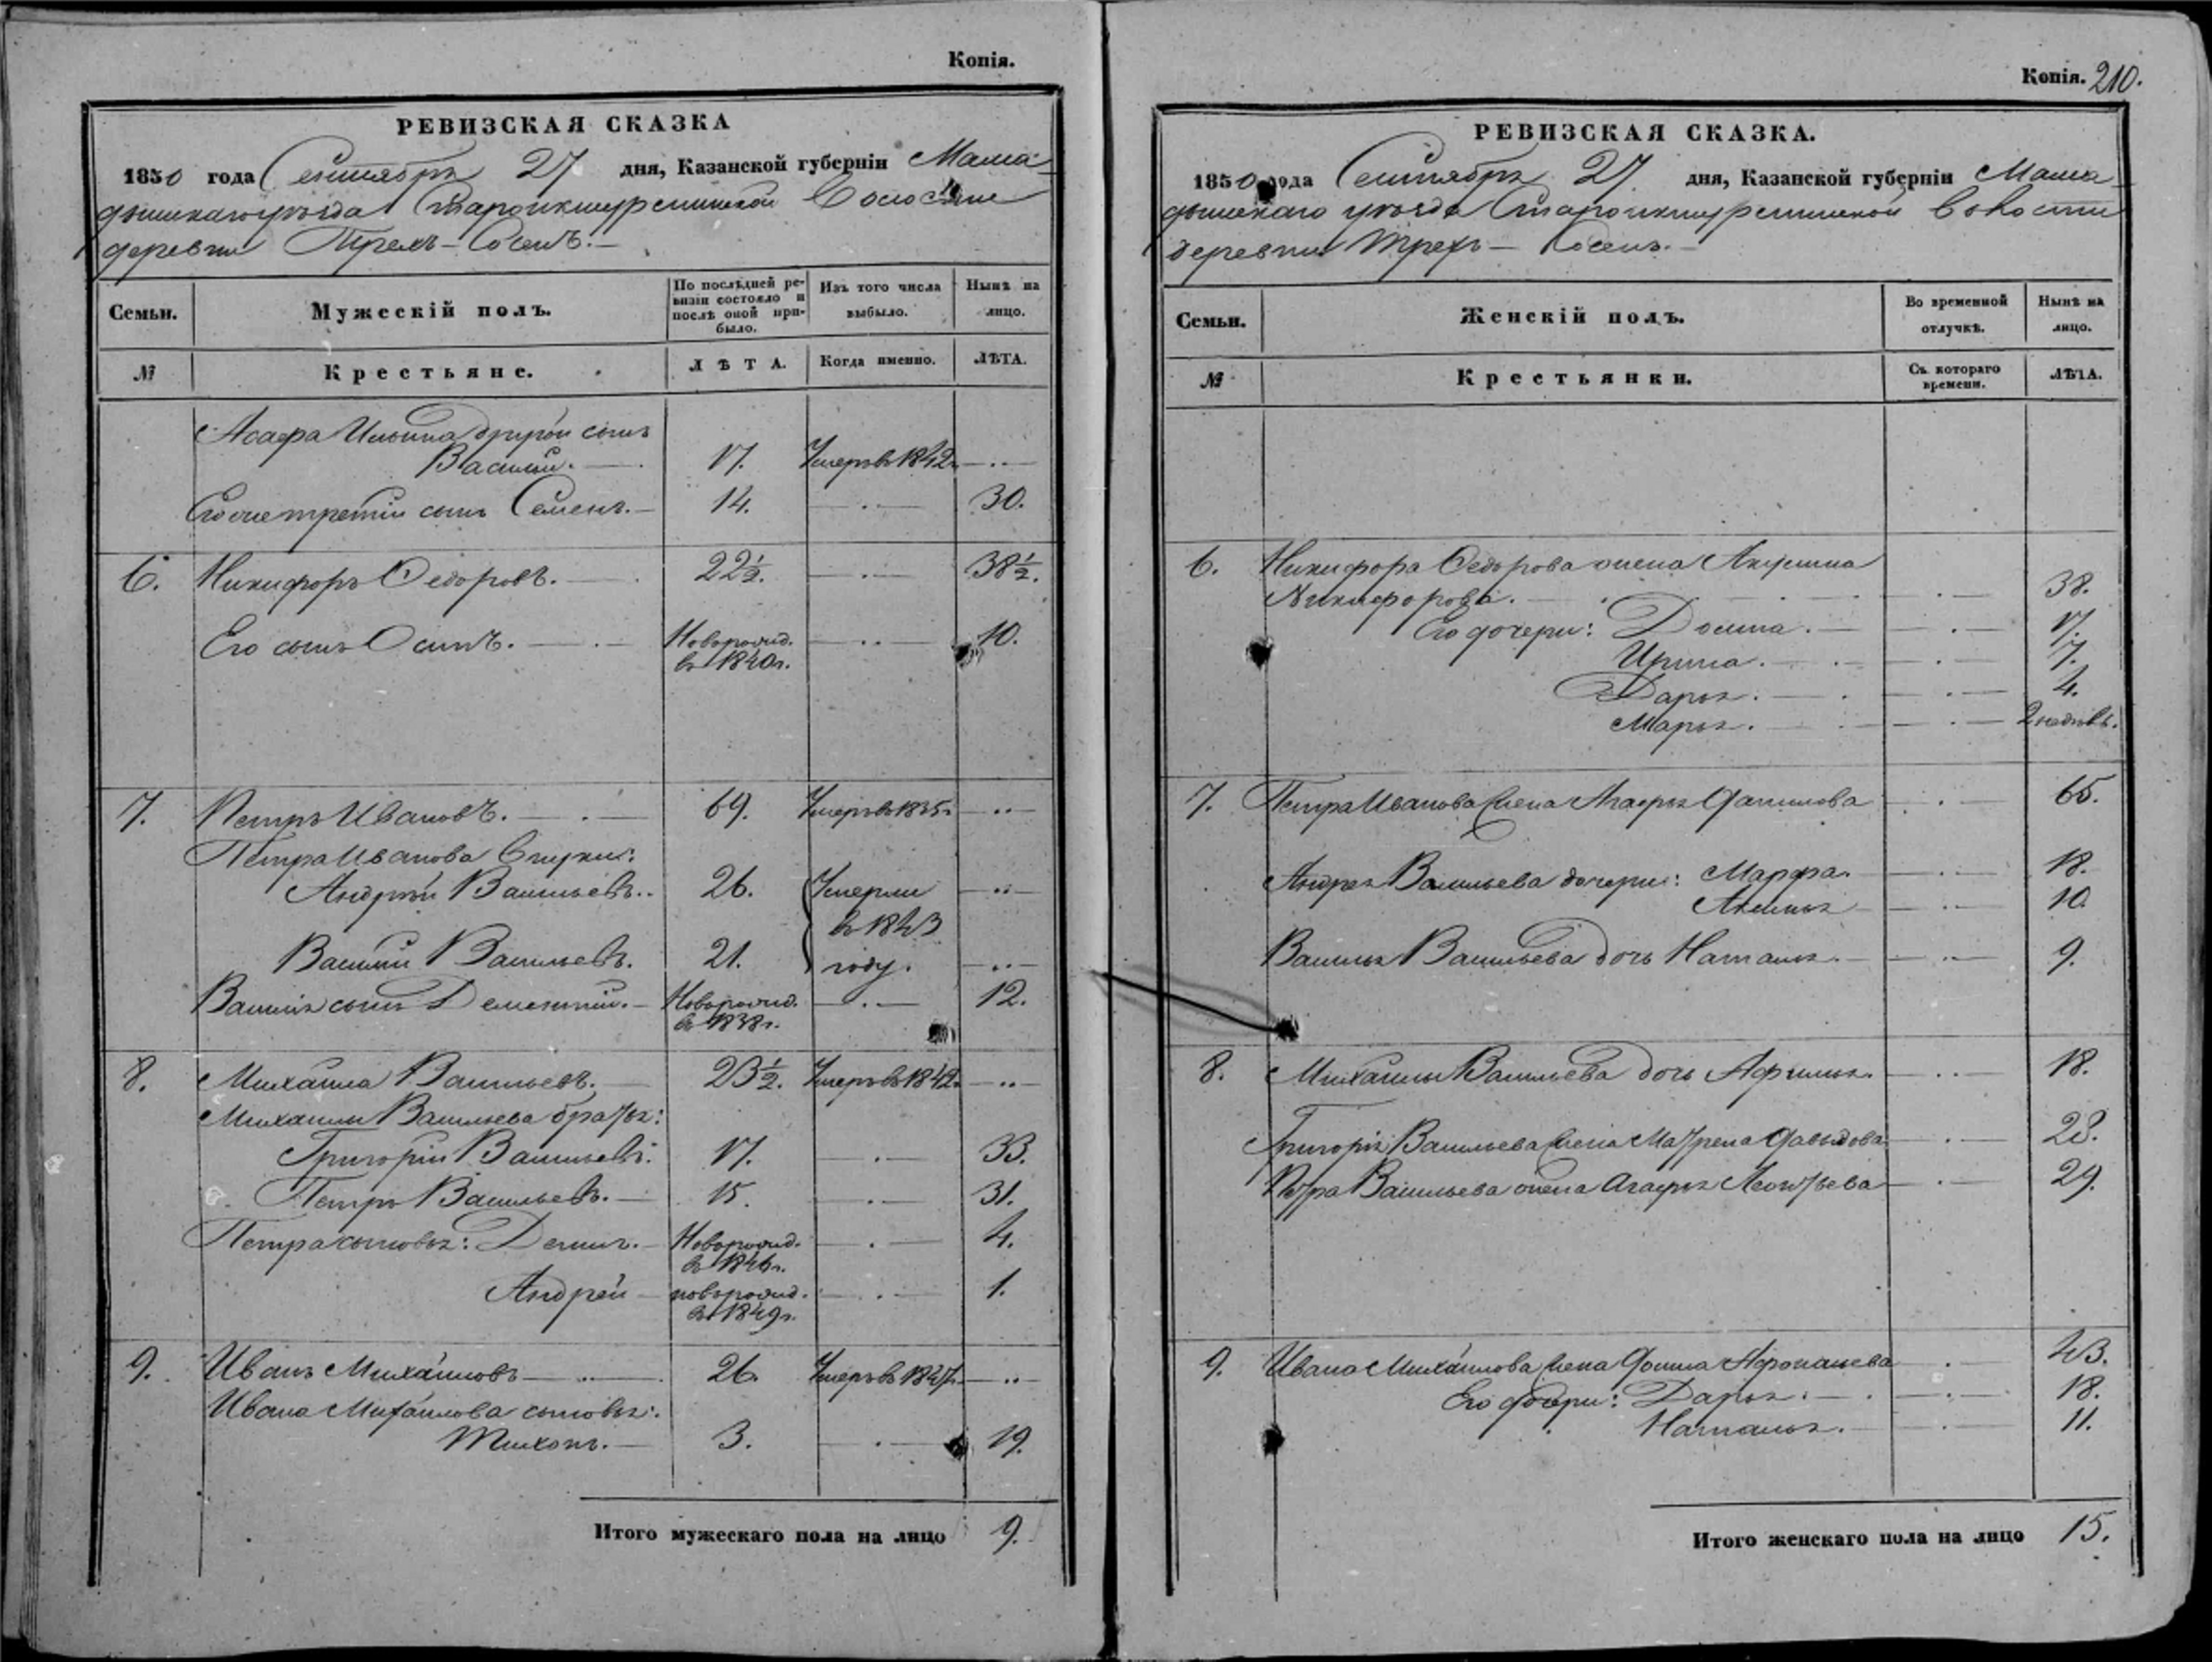 Копія.
РЕВИЗСКАЯ СКАЗКА
1850 года Сентября 27 дня, Казанской губерніи Мама-
дышскаго уѣзда Волости
деревни Трехъ-Сосенъ.
Семьи. Мужескій полъ. По послѣдней ре-визіи состояло и послѣ оной при-было. Изъ того числа выбыло. Нынѣ на лицо.
№ Крестьяне. ЛѢТА. Когда именно. ЛѢТА.
Асафа Ильина другой сынъ
Василій. 17. Умеръ въ 1842 г.
Его же третій сынъ Семенъ. 14. 30.
6. Никифоръ Ѳедоровъ. 22½. 38½.
Его сынъ Осипъ. Новорожд. въ 1840 г. 10.
7. Петръ Ивановъ. 69. Умеръ въ 1835 г.
Петра Иванова внуки:
Андрей Васильевъ. 26. Умерли
въ 1843
Василій Васильевъ. 21. году.
Василія сынъ Дементій. Новорожд. въ 1838 г. 12.
8. Михаила Васильевъ. 23½. Умеръ въ 1842
Михаилы Васильева братья:
Григорій Васильевъ. 17. 33.
Петръ Васильевъ. 15. 31.
Петра сыновья: Денисъ. Новорожд. въ 1846 г. 4.
Андрей новорожд. въ 1849 г. 1.
9. Иванъ Михайловъ 26. Умеръ въ 1847
Ивана Михайлова сыновья:
Тихонъ. 3. 19.
Итого мужескаго пола на лицо 9.
Копія. 210.
РЕВИЗСКАЯ СКАЗКА.
1850 года Сентября 27 дня, Казанской губерніи Мама-
дышскаго уѣзда Волости
деревни Трехъ-Сосенъ.
Семьи. Женскій полъ. Во временной отлучкѣ. Нынѣ на лицо.
№ Крестьянки. Съ котораго времени. ЛѢТА.
6. Никифора Ѳедорова жена Акулина
Никифорова. 38.
Его дочери: Домна. 17.
Ирина. 7.
Дарья. 4.
Марья. 2 недѣль.
7. Петра Иванова жена Агафья Данилова 65.
Андрея Васильева дочери: Марфа. 18.
Аксинья 10.
Василья Васильева дочь Наталья. 9.
8. Михаилы Васильева дочь Афимья. 18.
Григорія Васильева жена Матрена Давыдова 28.
Петра Васильева жена Агафья Леонтьева 29.
9. Ивана Михайлова жена Домна Афонасьева 43.
Его дочери: Дарья. 18.
Наталья. 11.
Итого женскаго пола на лицо 15.